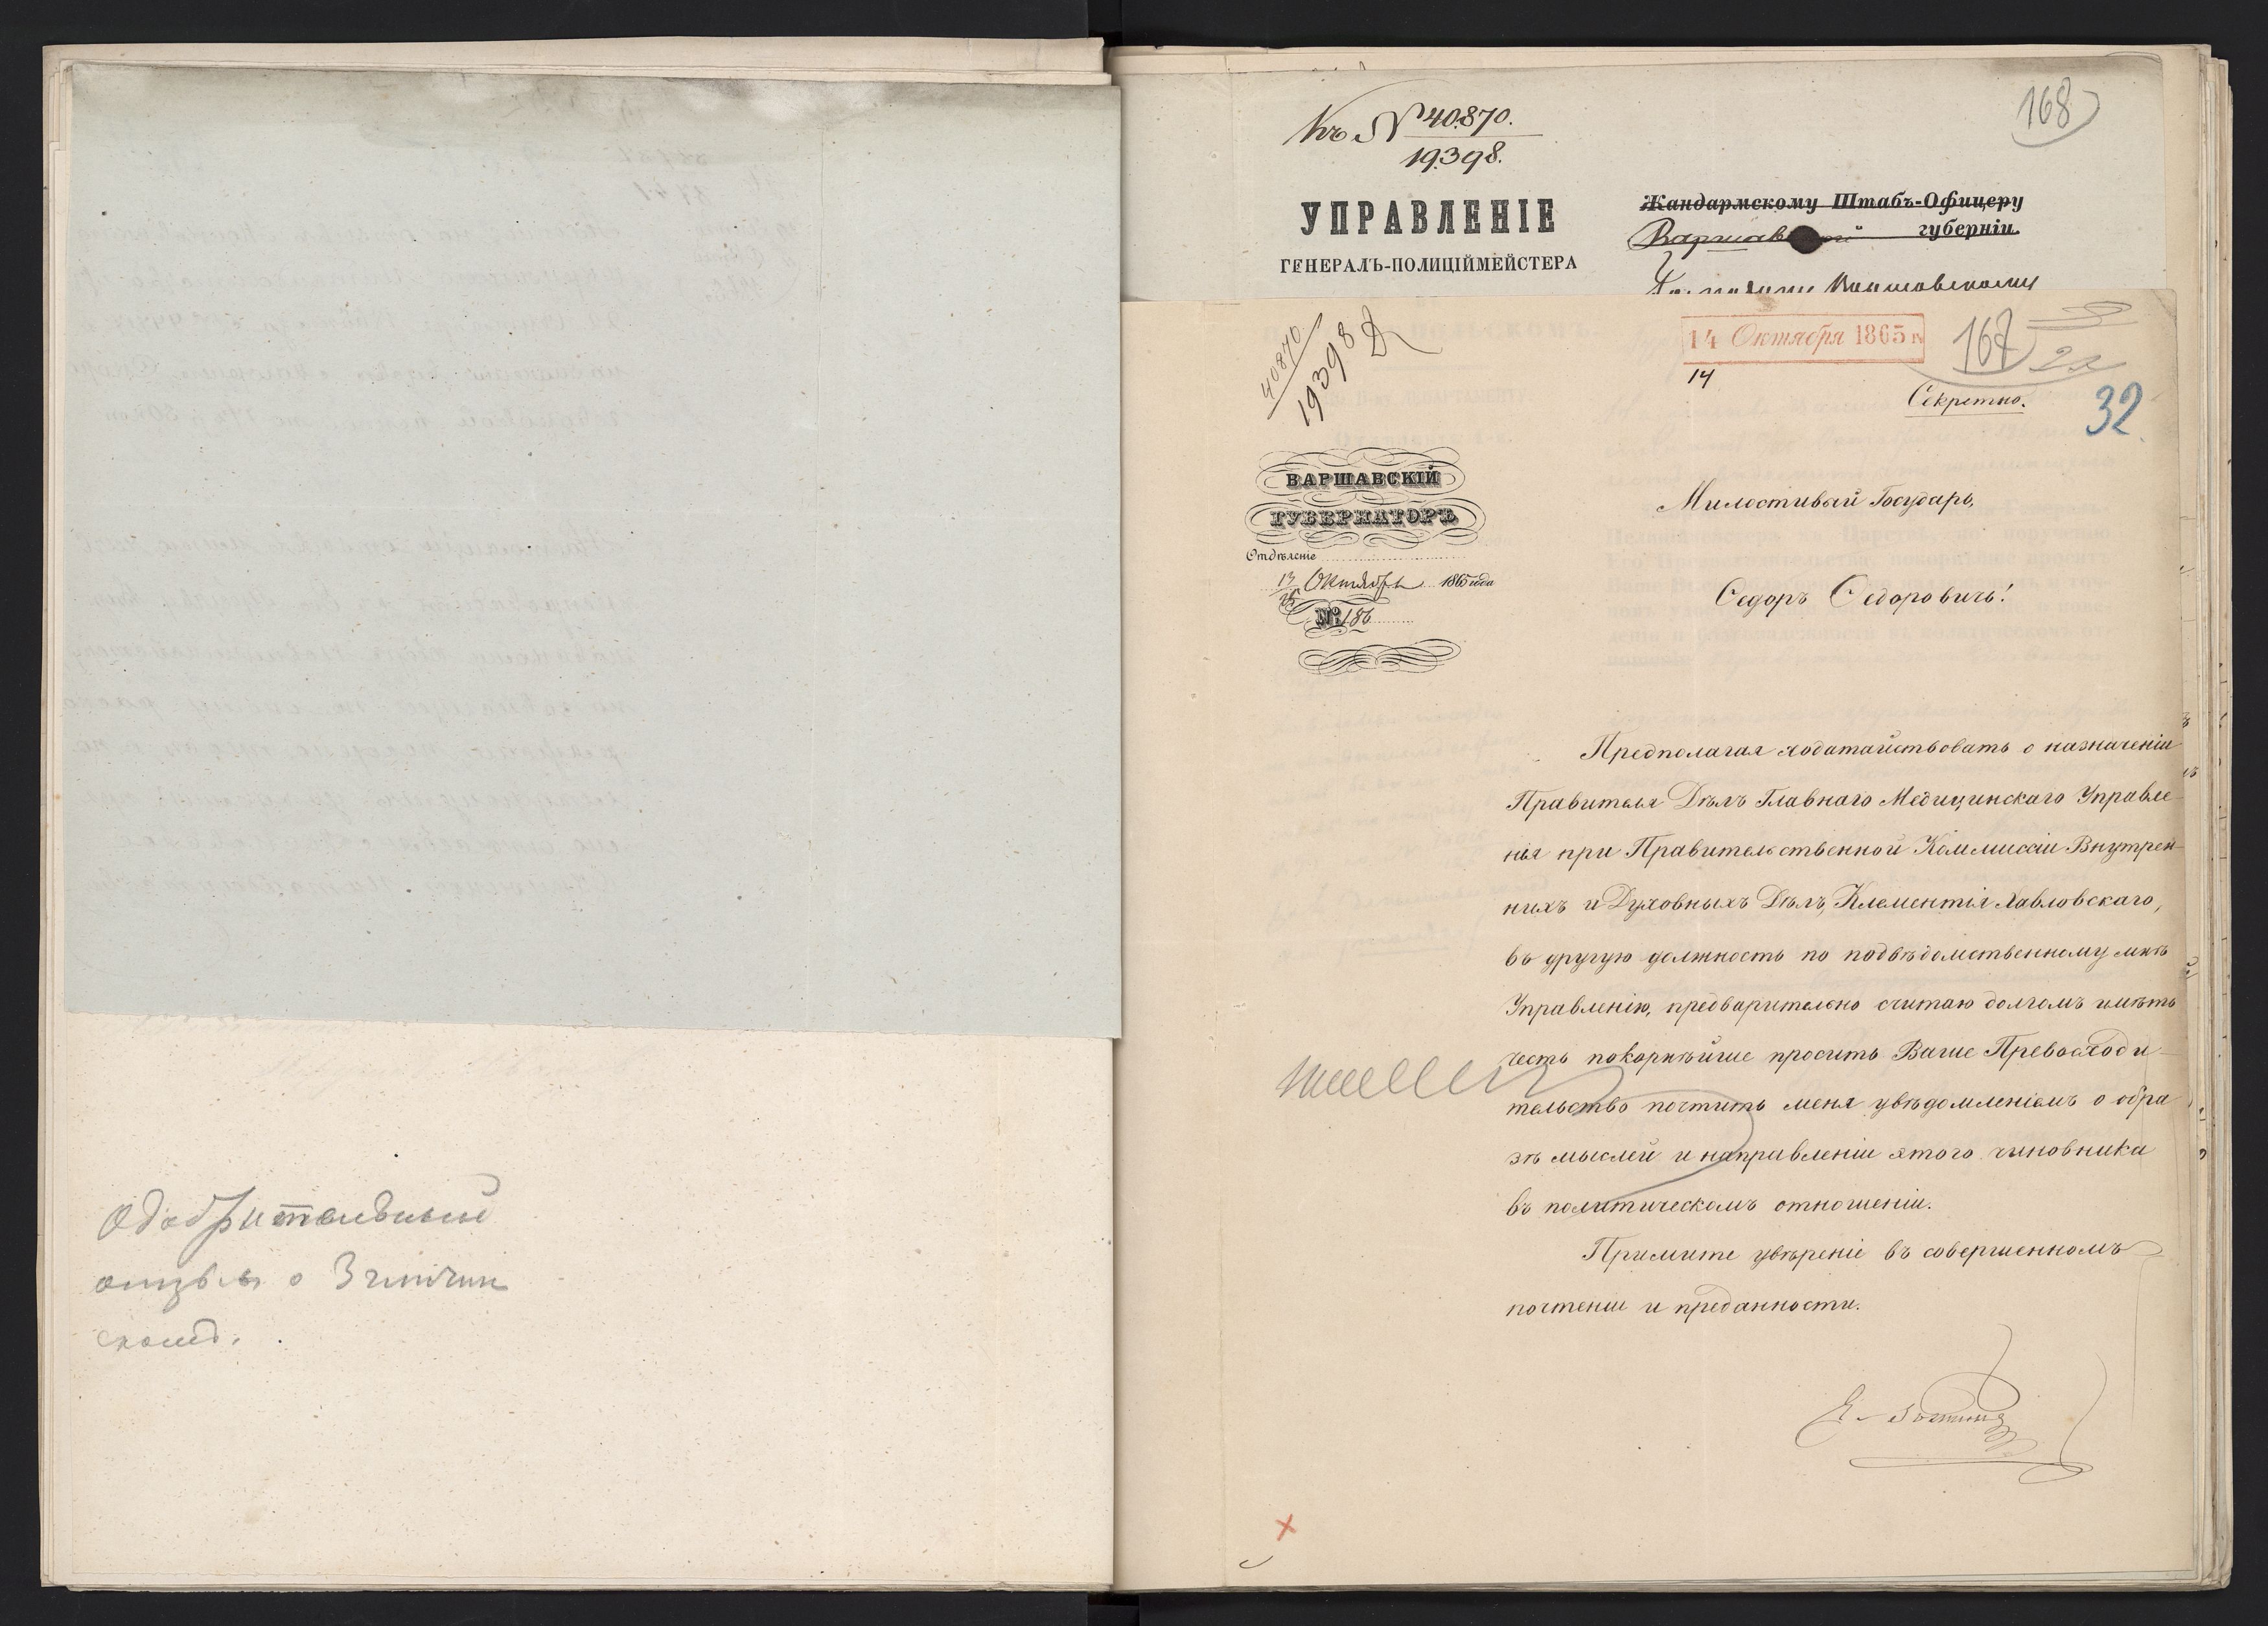 Одобрительный
отзывъ о
Къ № 40870.
19398.
168
УПРАВЛЕНІЕ
ГЕНЕРАЛЪ-ПОЛИЦІЙМЕЙСТЕРА
Жандармскому Штабъ-Офицеру
губерніи
40870
19398
14 Октября 1865 г.
14
167
22
Секретно.
32
ВАРШАВСКІЙ
ГУБЕРНАТОРЪ
Отдѣленіе
13/25 Октября 1865 года
№ 186
Милостивый Государь,
Ѳедоръ Ѳедоровичъ!
Предполагая ходатайствовать о назначеніи
Правителя Дѣлъ Главнаго Медицинскаго Управле-
нія при Правительственной Коммиссіи Внутрен-
нихъ и Духовныхъ Дѣлъ, Клементія Павловскаго,
въ другую должность по подвѣдомственному мнѣ
Управленію, предварительно считаю долгомъ имѣть
честь покорнѣйше просить Ваше Превосходи-
тельство почтить меня увѣдомленіемъ о обра
зѣ мыслей и направленіи этого чиновника
въ политическомъ отношеніи.
Примите увѣреніе въ совершенномъ
почтеніи и преданности.